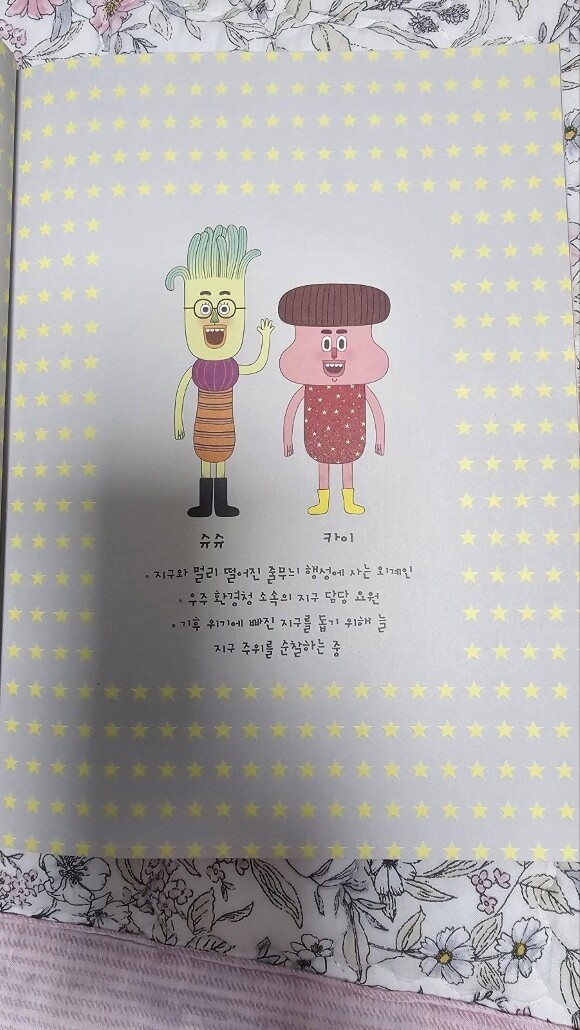 슈슈
카이
• 지구와 멀리 떨어진 줄무늬 행성에 사는 외계인
• 우주 환경청 소속의 지구 담당 요원
• 기후 위기에 빠진 지구를 돕기 위해 늘
지구 주위를 순찰하는 중